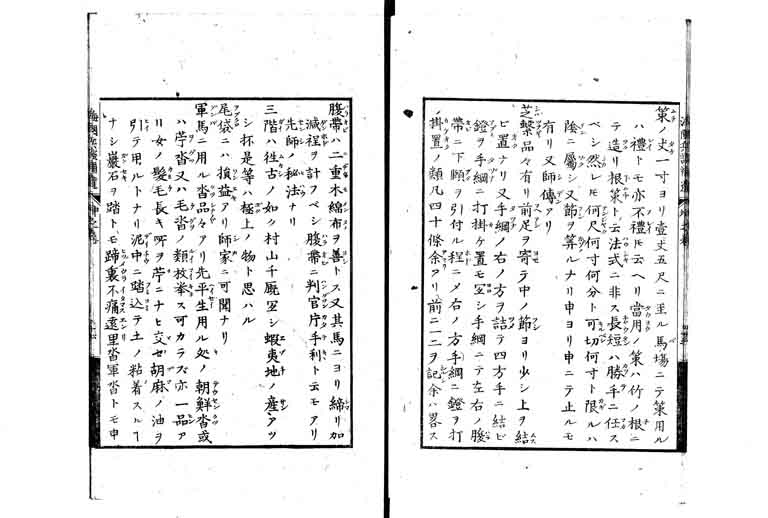 策ノ丈一寸ヨリ壹丈五尺ニ至ル馬塲ニテ策用ル
ハ禮トモ亦不禮𪜈云ヘリ當用ノ策ハ竹ノ根ニ
テ造リ根策ト云法式ニ非ス長短ハ勝手ニ任ス
ベシ然レ𪜈何尺何寸何分ト可切何寸ト限ルハ
陰ニ屬シ又節ヲ算ルナリ申ヨリ申ニテ止ルモ
有リ又師傳アリ
芝繋品々有リ前足ヲ寄テ中ノ節ヨリ少シ上ヲ結
ヒ置ナリ又手綱ノ右ノ方ヲ詰テ四方手ニ結ヒ
鐙ヲ手綱ニ打掛ケ置モ冝シ手綱ニテ左右ノ腹
帶ニ下頤ヲ引付ル程ニメ右ノ方手綱ニ鐙ヲ打
掛置ノ類凡四十條余アリ前ニ一二ヲ記余ハ畧ス
腹帶ハ二重木綿布ヲ善トス又其馬ニヨリ締リ加
減程ヲ計フベシ腹帶ニ判官片手利ト云モアリ
先師ノ秘法ナリ
三階ハ徃古ノ如ク村山千厩冝シ蝦夷地ノ産アツ
シ抔是等ハ極上ノ物ト思ハル
尾袋ニハ損益アリ師家ニ可聞ナリ
軍馬ニ用ル沓品々アリ先平生用ル処ノ朝鮮沓或
ハ苧沓又ハ毛沓ノ類枚挙ス可カラズ亦一品ア
リ女ノ髮毛長キ所ヲ苧ニナヒ交セ胡麻ノ油ヲ
引テ用ルトナリ泥中ニ踏込テ土ノ粘着スルヿ
ナシ巖石ヲ踏トモ蹄裏不痛遠里沓軍沓トモ申